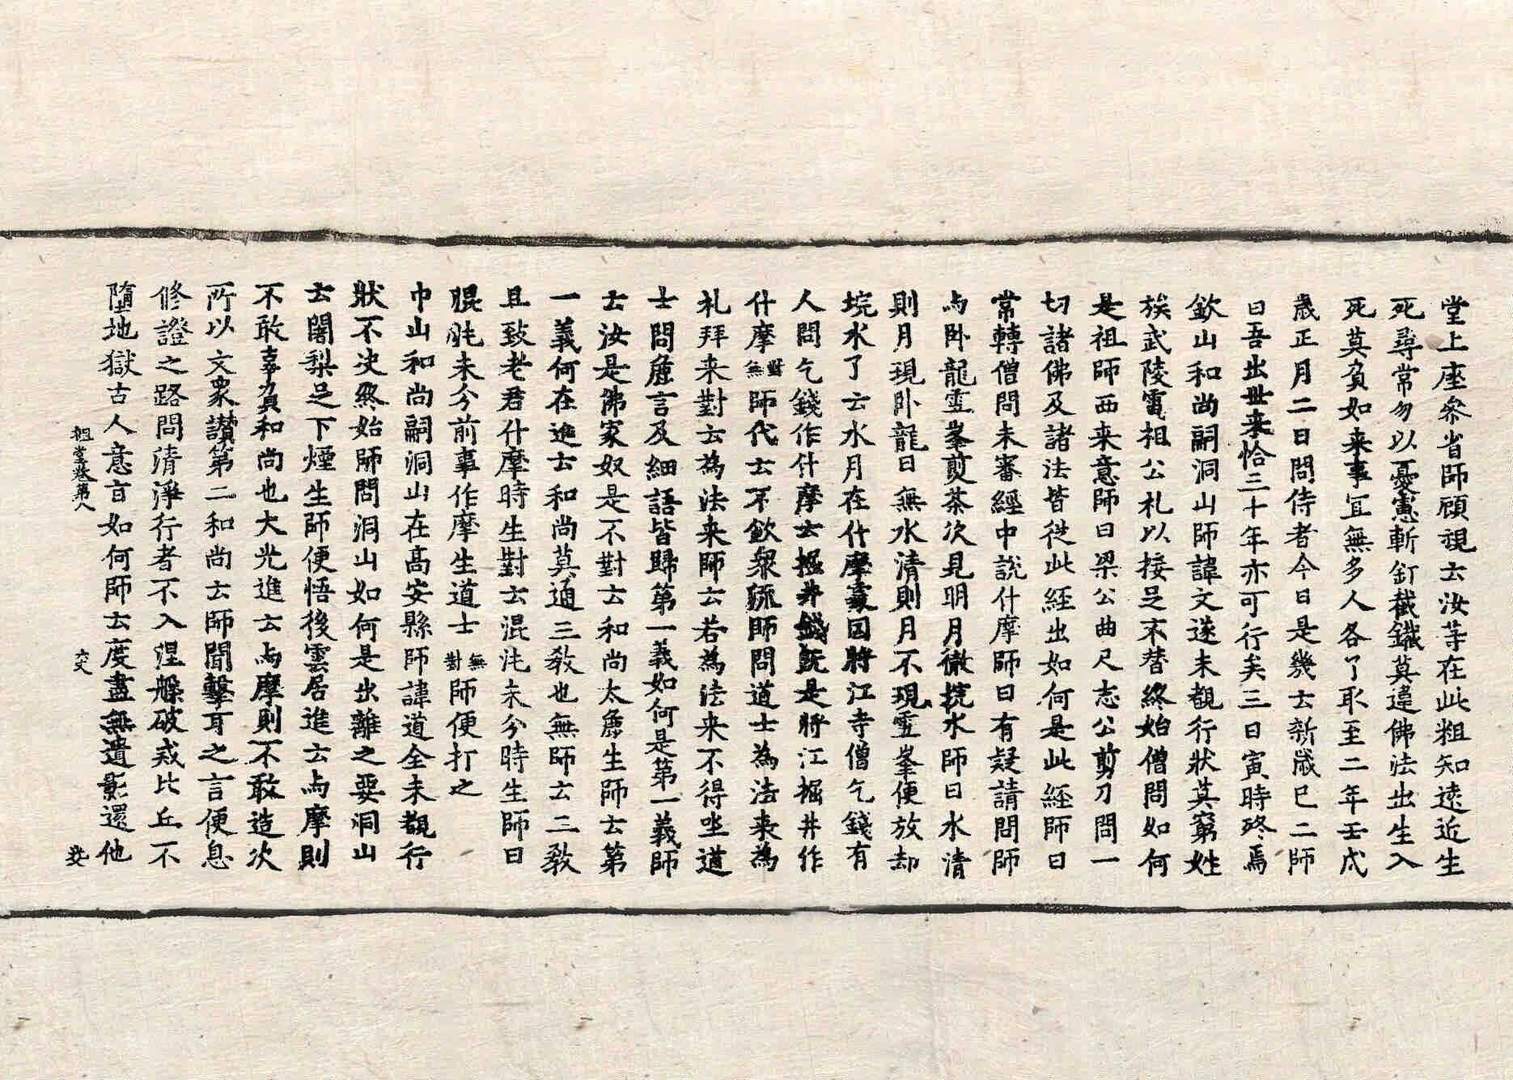 堂上座叅省師顧視云汝等在此粗知遠近生
死尋常勿以憂慮斬釘截鐵莫違佛法出生入
死莫負如来事宜無多人各了取至二年壬戌
歳正月二日問侍者今日是幾云新歳已二師
曰吾出世来恰三十年亦可行矣三日寅時終焉
欽山和尚嗣洞山師諱文邃未覩行狀莫窮姓
族武陵雷相公札以接足不替終始僧問如何
是祖師西来意師曰梁公曲尺志公剪刀問一
切諸佛及諸法皆従此經出如何是此經師曰
常轉僧問未審經中說什摩師曰有疑請問師
与卧龍雪峯煎茶次見明月徹垸水師曰水清
則月現卧龍曰無水清則月不現雪峯便放却
垸水了云水月在什摩處因將江寺僧乞錢有
人問乞錢作什摩云掘井錢旣是將江掘井作
什摩無對師代云不欽衆疏師問道士為法来為
礼拜来對云為法来師云若為法来不得坐道
士問麁言及細語皆歸第一義如何是第一義師
云汝是佛家奴是不對云和尚太麁生師云第
一義何在進云和尚莫通三教也無師云三教
且致老君什摩時生對云混沌未分時生師曰
混沌未分前事作摩生道士無對師便打之
中山和尚嗣洞山在高安縣師諱道全未覩行
狀不决終始師問洞山如何是出離之要洞山
云闍梨足下煙生師便悟後雲居進云与摩則
不敢辜負和尚也大光進云与摩則不敢造次
所以文衆讃第二和尚云師聞擊耳之言便息
修證之路問清淨行者不入涅槃破戒比丘不
墮地獄古人意旨如何師云度盡無遺影還他
祖堂卷第八 六丈